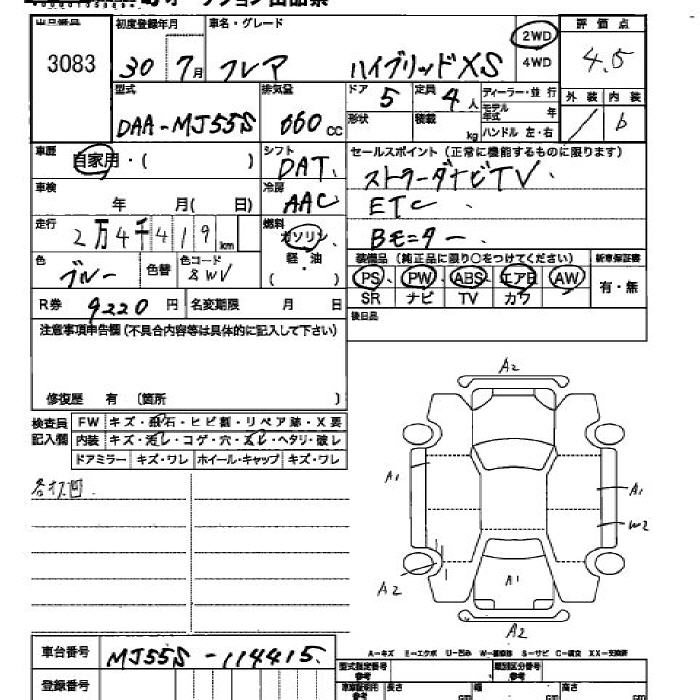 出品番号 初度登録年月 車名・グレード 評価点
3083 30 7月 フレア ハイブリッドXS 2WD 4WD 4.5
型式 排気量 ドア 定員 ディーラー・並行 外装 内装
DAA-MJ55S 660 CC 5 4人 モデル年式 年 / b
形状 積載 kg ハンドル 左・右
車歴 自家用・( ) シフト DAT セールスポイント (正常に機能するものに限ります)
車検 年 月( 日) 冷房 AAC ストラーダナビTV.
ETC
走行 2万4千419km 燃料 ガソリン 軽・油 ( ) Bモニター
色 ブルー 色替 色コード 装備品 (純正品に限り○をつけてください) 新車保証書
PS PW ABS エアB AW 有・無
SR ナビ TV カワ
R券 9220円 名変期限 月 日 後日品
注意事項申告欄 (不具合内容等は具体的に記入して下さい)
修復歴 有 〔箇所 〕
検査員記入欄 FW キズ・飛石・ヒビ割・リペア跡・X要
内装 キズ・汚レ・コゲ・穴・スレ・ヘタリ・破レ
ドアミラー キズ・ワレ ホイール・キャップ キズ・ワレ
A2
A1
A1
W2
A2
A1
A2
A-キズ E-エクボ U-凹み W-補修跡 S-サビ C-腐食 XX-交換済
車台番号 MJ55S-114415.
型式指定番号 参考 類別区分番号 参考
登録番号 長さ 幅 高さ